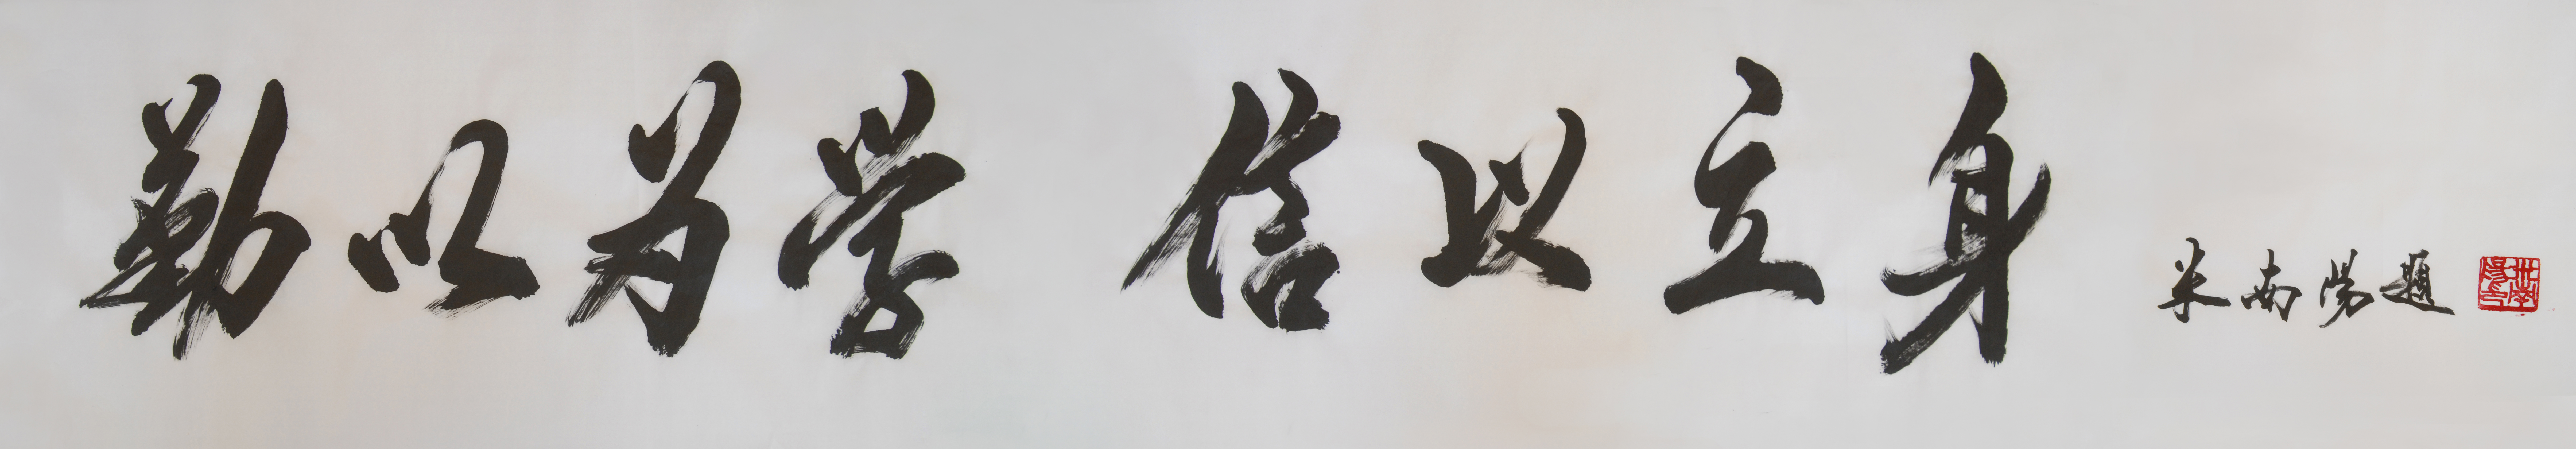 勤以为学 信以立身 米南阳题